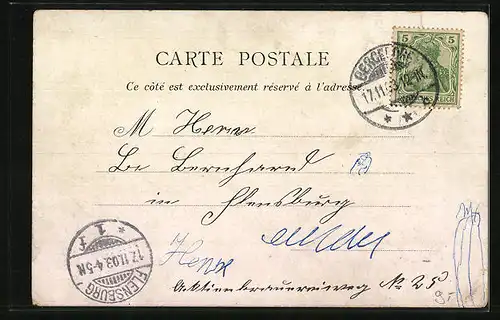 5 5
REICH
BERGEDORF
17.11.03. 12-1N.
* *
CARTE POSTALE
Ce côté est exclusivement réservé à l'adresse.
M Herrn
Bernhard
in Flensburg
* 1 f
17.11.03. 4-5N
FLENSBURG
Aktienbrauereiweg No 25